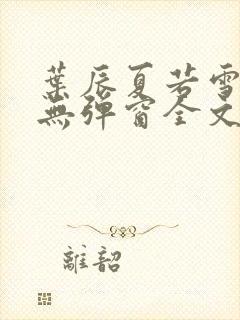 葉辰夏若雪
無彈窗全文
離韶